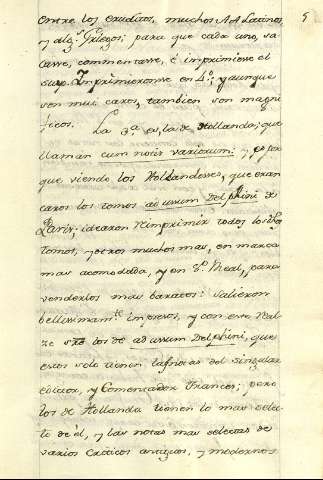 entre los eruditos, muchos AA Latinos, 5
y alg.s Griegos; para que cada uno, sa
casse, commentasse, è imprimiesse el
suyo. Imprimieronse en 4.º; y aunque
son mui caros, tambien son magni
ficos. La 3.ª es, la de Hollanda; que
llaman cum notis variorum: y es por
que viendo los Hollandeses, que eran
caros los tomos ad usum Delphini de
Paris; idearon reimprimir todos los
tomos, y otros muchos mas, en marca
mas acomodada, y en 8.º Real, para
venderlos mas baratos: salieron
bellissimam.te impresos, y con este real
ze los de ad usum Delphini, que
estos solo tienen las notas del singular
editor, y Comentador Frances; pero
los de Hollanda tienen lo mas selec
to de èl, y las notas mas selectas de
varios Criticos antiguos, y modernos